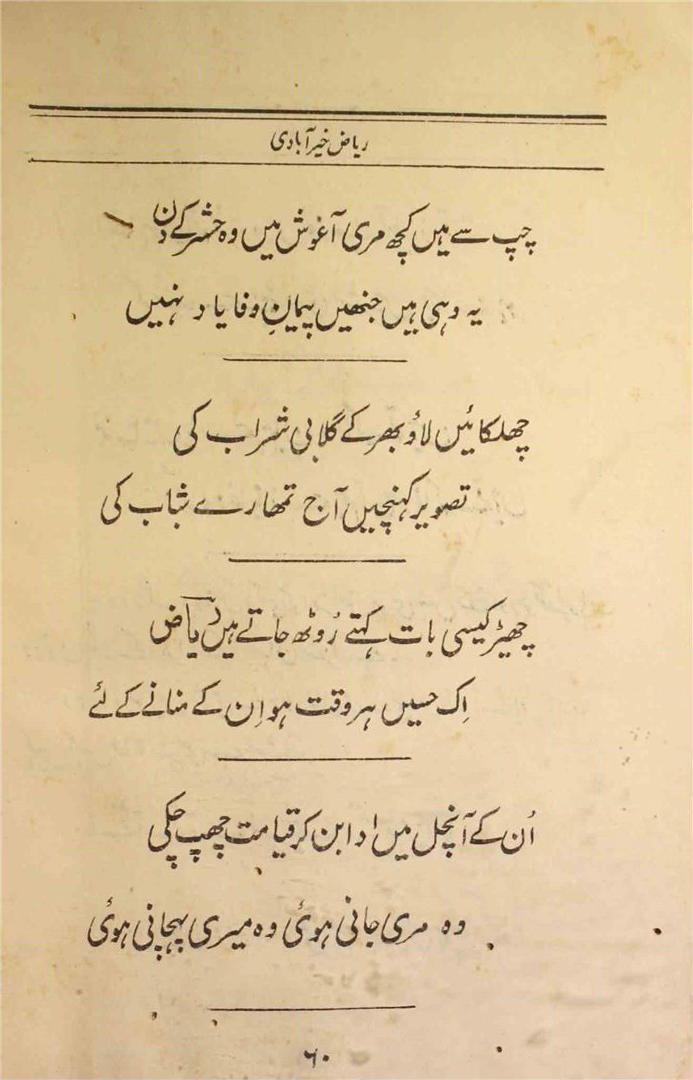 ریاض خیرآبادی
چپ سے ہیں کچھ مری آغوش میں وہ حشر کے دن
یہ وہی ہیں جنھیں پیمانِ وفا یاد نہیں
چھلکائیں لاؤ بھر کے گلابی شراب کی
تصویر کھنچیں آج تمھارے شباب کی
چھیڑ کیسی بات کہتے رُوٹھ جاتے ہیں ریاض
اِک حسیں ہر وقت ہو اِن کے منانے کے لئے
اُن کے آنچل میں ادا بن کر قیامت چھپ چکی
وہ مری جانی ہوئی وہ میری پہچانی ہوئی
۶۰